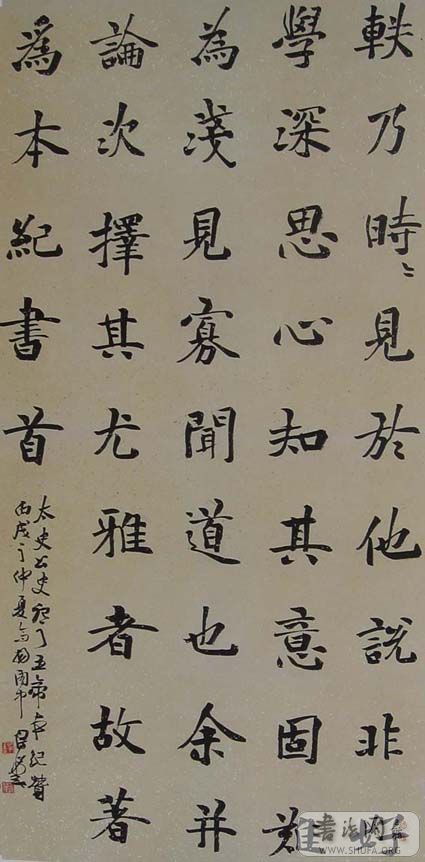 軼乃時〻見於他說非好
學深思心知其意固難
為淺見寡聞道也余并
論次擇其尤雅者故著
為本紀書首
太史公史記五帝本紀贊
丙戌仲夏
WWW.SHUFA.ORG